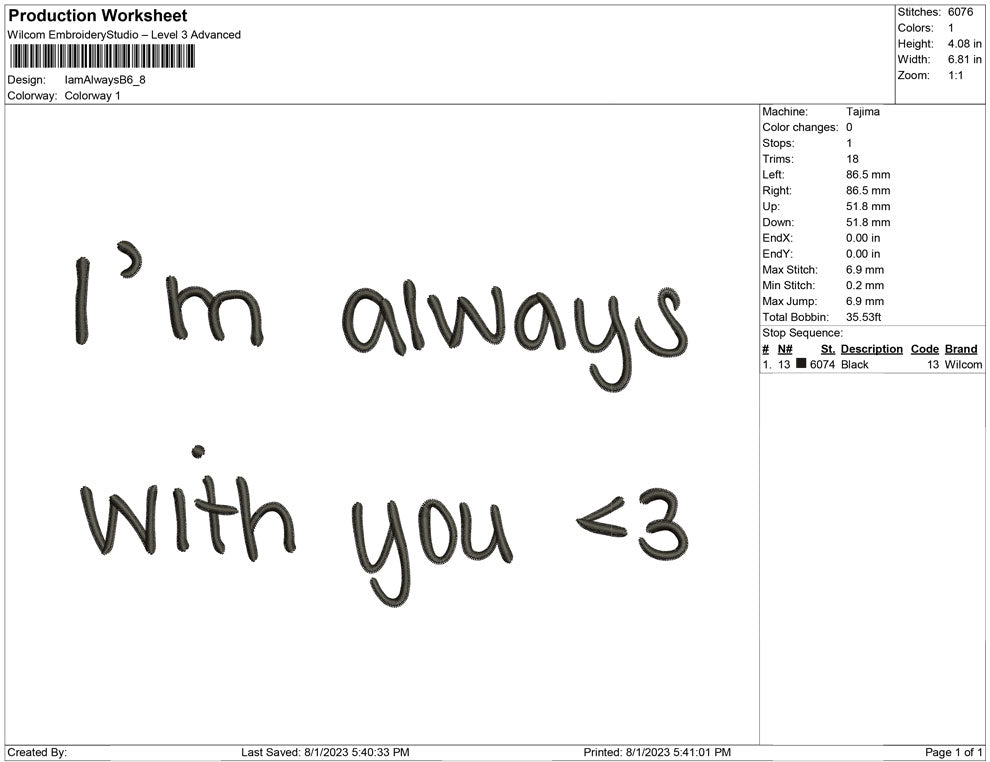 Production Worksheet
Wilcom EmbroideryStudio – Level 3 Advanced
Design: IamAlwaysB6_8
Colorway: Colorway 1
Stitches: 6076
Colors: 1
Height: 4.08 in
Width: 6.81 in
Zoom: 1:1
I'm always
with you <3
Machine: Tajima
Color changes: 0
Stops: 1
Trims: 18
Left: 86.5 mm
Right: 86.5 mm
Up: 51.8 mm
Down: 51.8 mm
EndX: 0.00 in
EndY: 0.00 in
Max Stitch: 6.9 mm
Min Stitch: 0.2 mm
Max Jump: 6.9 mm
Total Bobbin: 35.53ft
Stop Sequence:
# N# St. Description Code Brand
1. 13 6074 Black 13 Wilcom
Created By: Last Saved: 8/1/2023 5:40:33 PM Printed: 8/1/2023 5:41:01 PM Page 1 of 1